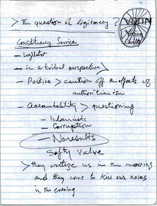 > The question of legitimacy ?
Constituency Service
- Legislator
- in a tribal perspective
- Positive > caution off the effects of
authoritarian
- Accountability > questioning
- Islamists
- Corruption
No results
Safety Valve
> They criticize us in the morning
and they come to kiss our noses
in the evening